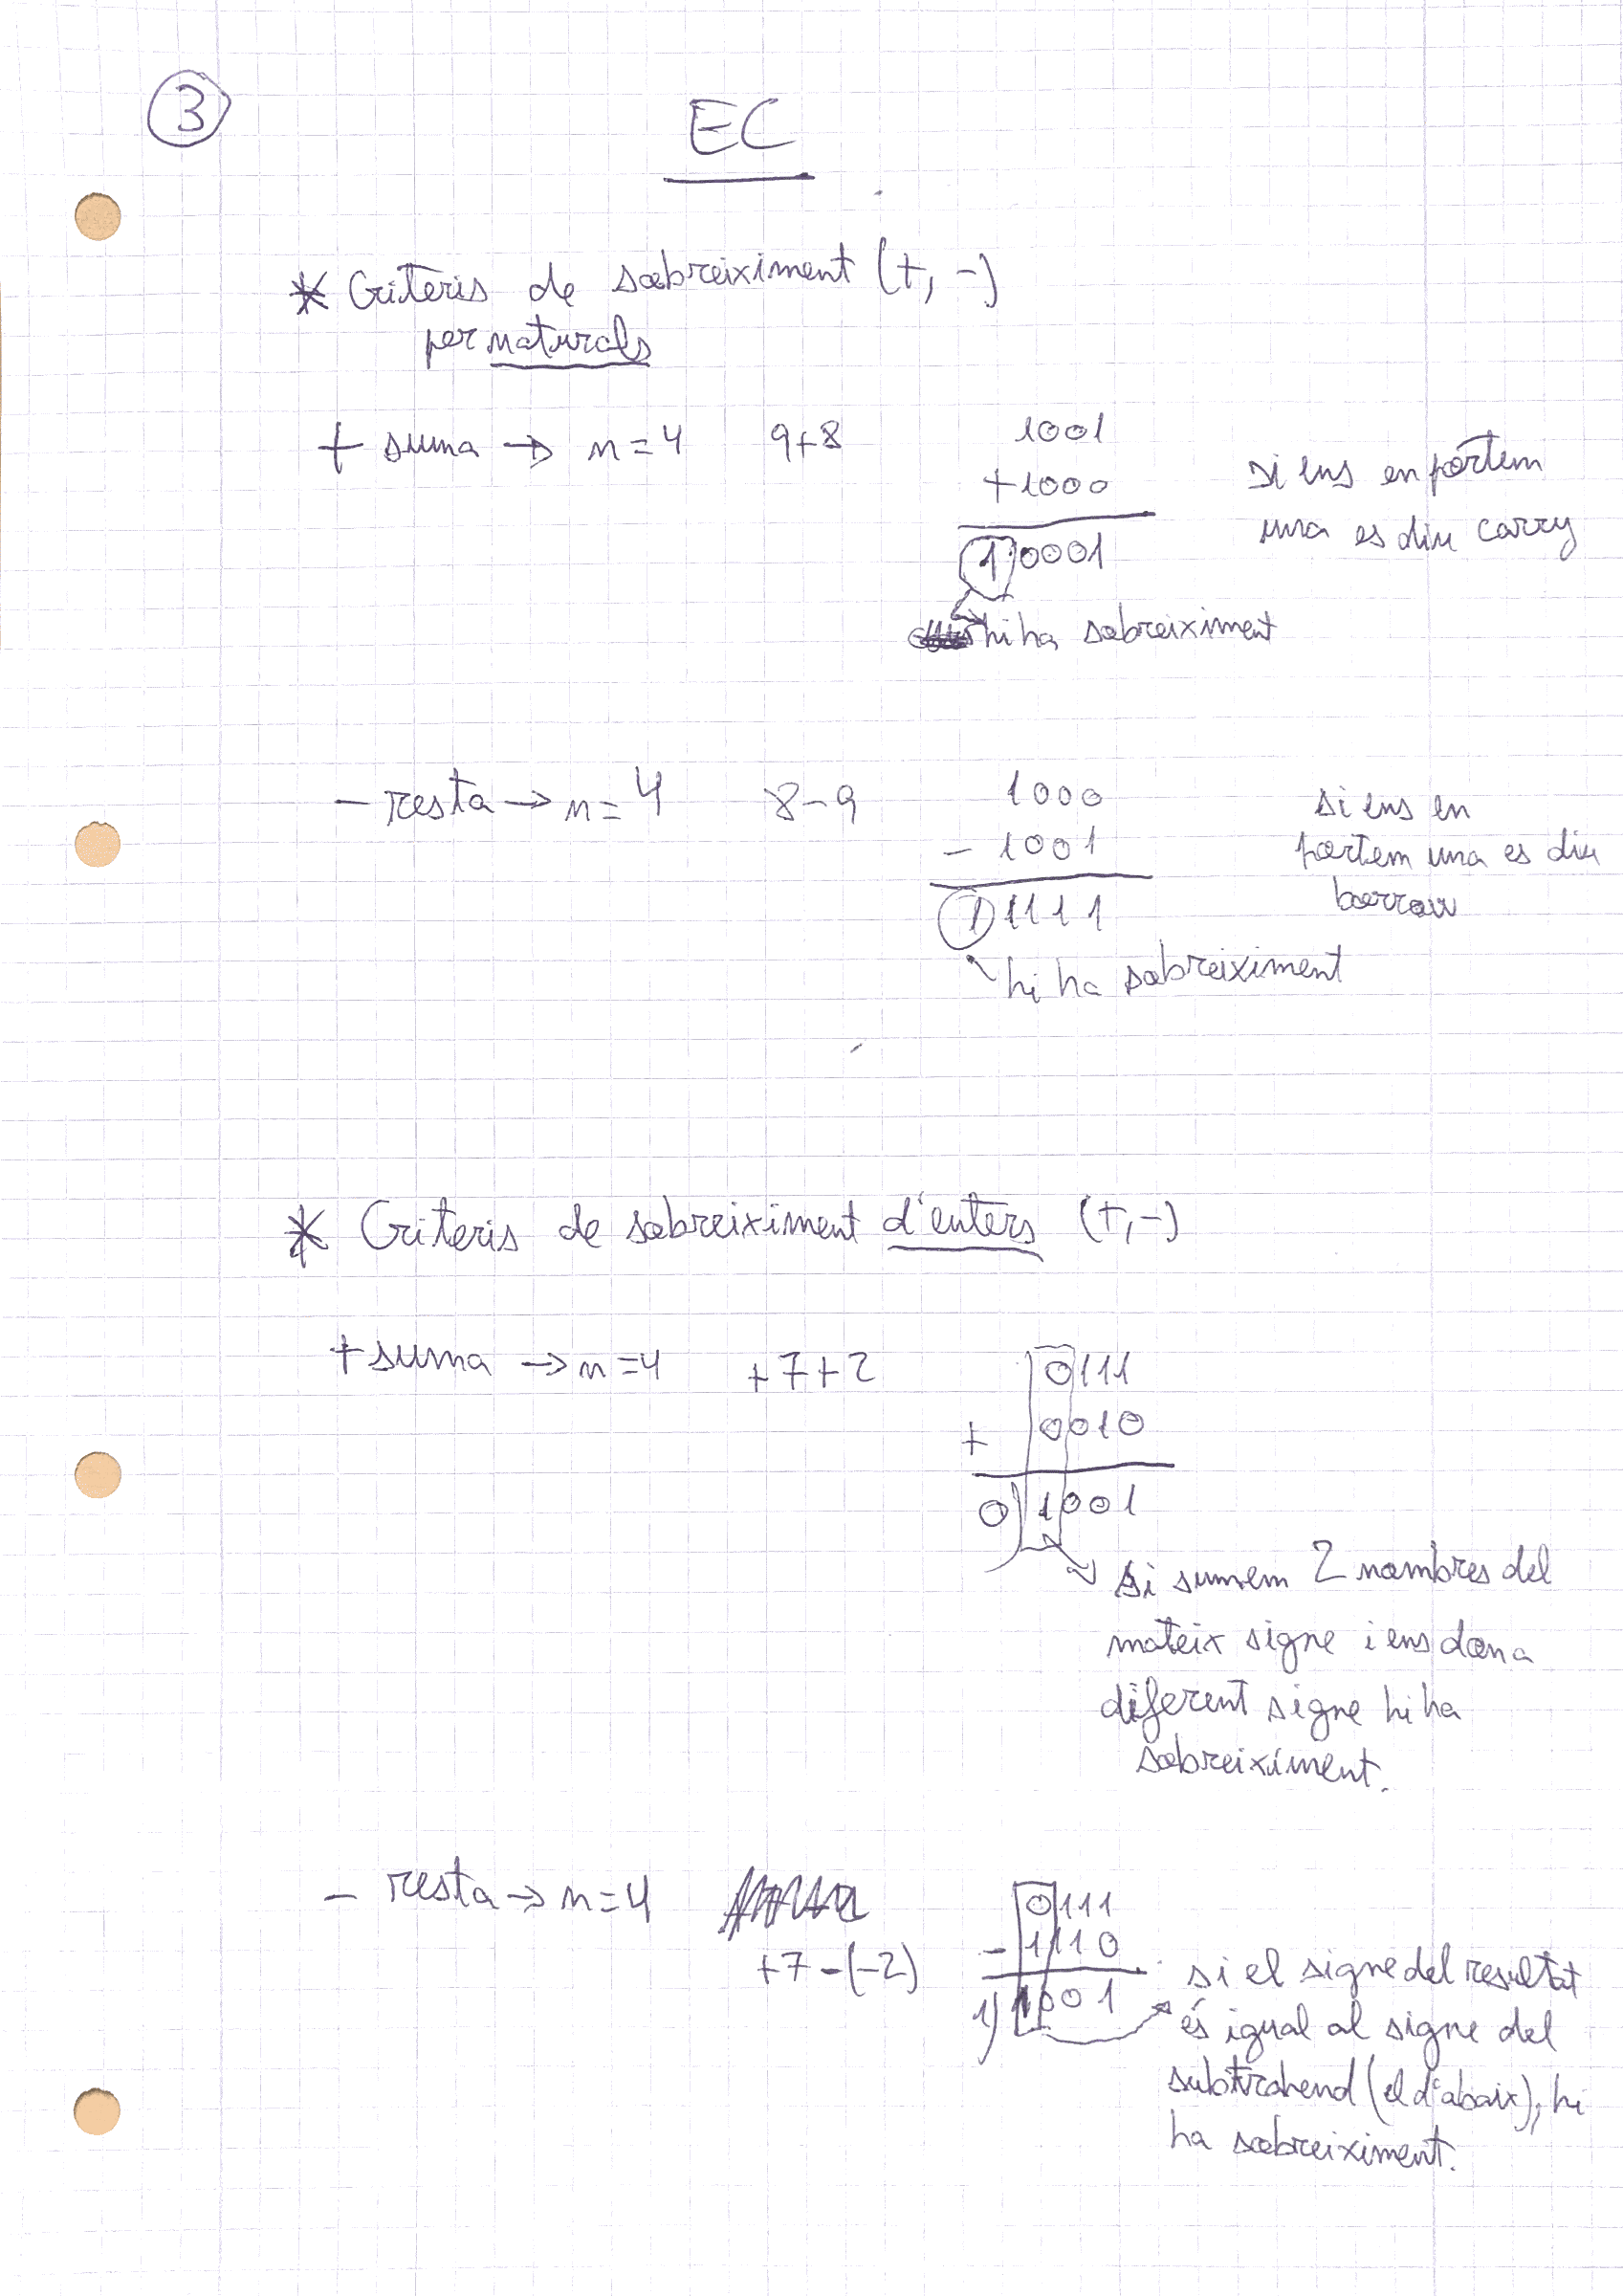 3
EC
* Criteris de sobreiximent (+, -)
per naturals
+ suma → n=4 9+8
1001
+1000
1 0001
si ens en portem
una es diu carry
hi ha sobreiximent
- resta → n=4 8-9
1000
- 1001
1 1111
si ens en
portem una es diu
borrow
hi ha sobreiximent
* Criteris de sobreiximent d'enters (+,-)
+ suma → n=4 +7+2
0111
+ 0010
0) 1001
si sumem 2 nombres del
mateix signe i ens dona
diferent signe hi ha
sobreiximent.
- resta → n=4
+7-(-2)
0111
- 1110
1) 1001
si el signe del resultat
és igual al signe del
subtrahend (el d'abaix), hi
ha sobreiximent.